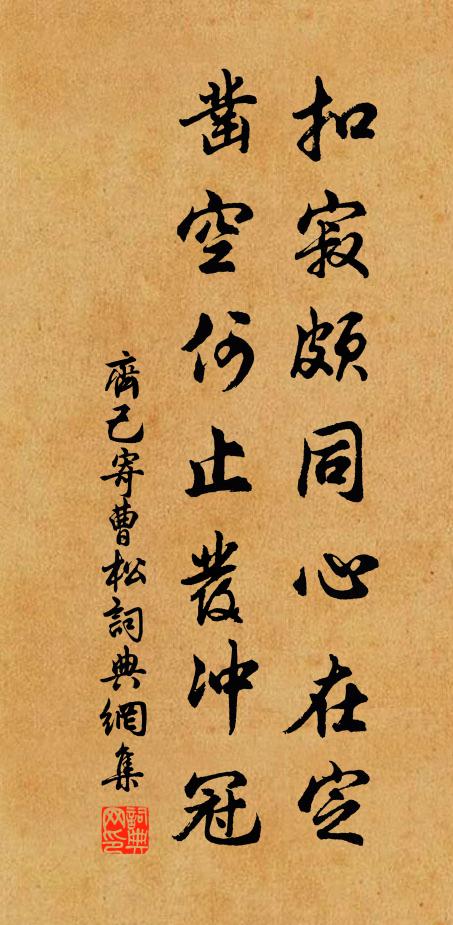 扣寂頗同心在定
鑿空何止發冲冠
齊己寄曹松詞典網集
詞典网印